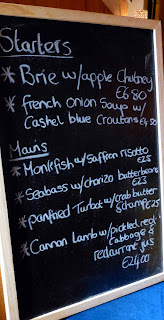 Starters
* Brie w/apple Chutney
€6.80
* french Onion Soup w/
Cashel blue croutons €6.50
Mains
* Monkfish w/Saffron risotto
€25
* Seabass w/chorizo butterbeans
€23
* panfried Turbot w/crab butter
& champ €25
* Cannon Lamb w/pickled red
cabbage &
redcurrant jus
€24.00